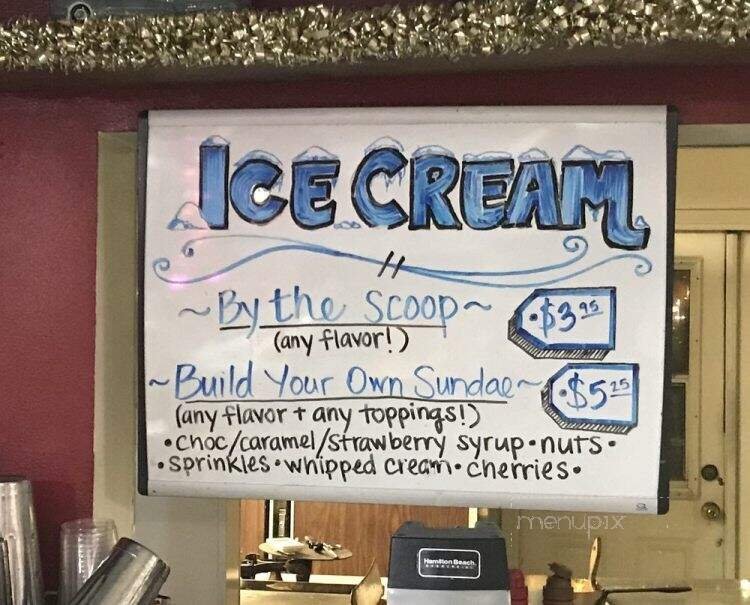 ICE CREAM
~ By the Scoop ~ •$3.95
(any flavor!)
~ Build Your Own Sundae ~ •$5.25
(any flavor + any toppings!)
• choc/caramel/strawberry syrup • nuts •
• sprinkles • whipped cream • cherries •
menupix
Hamilton Beach
COMMERCIAL